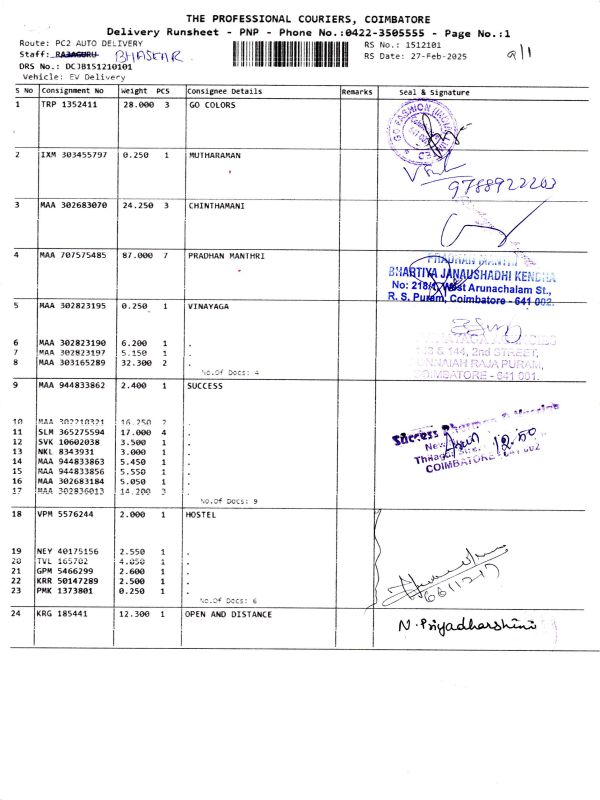 THE PROFESSIONAL COURIERS, COIMBATORE
Delivery Runsheet - PNP - Phone No.:0422-3505555 - Page No.:1
Route: PC2 AUTO DELIVERY RS No.: 1512101
Staff: RAJAGURU BHASKAR RS Date: 27-Feb-2025 9/1
DRS No.: DCJB151210101
Vehicle: EV Delivery
S No Consignment No Weight PCS Consignee Details Remarks Seal & Signature
1 TRP 1352411 28.000 3 GO COLORS
2 IXM 303455797 0.250 1 MUTHARAMAN
9788922203
3 MAA 302683070 24.250 3 CHINTHAMANI
4 MAA 707575485 87.000 7 PRADHAN MANTHRI
PRADHAN MANTRI
BHARTIYA JANAUSHADHI KENDRA
No: 218/4, West Arunachalam St.,
R. S. Puram, Coimbatore - 641 002.
5 MAA 302823195 0.250 1 VINAYAGA
6 MAA 302823190 6.200 1 .
7 MAA 302823197 5.150 1 .
8 MAA 303165289 32.300 2 .
& 144, 2nd STREET,
RAJA PURAM,
COIMBATORE - 641 001.
No.Of Docs: 4
9 MAA 944833862 2.400 1 SUCCESS
10 MAA 302210321 16.250 2
11 SLM 365275594 17.000 4 .
12 SVK 10602038 3.500 1 .
13 NKL 8343931 3.000 1 .
14 MAA 944833863 5.450 1 .
15 MAA 944833856 5.550 1 .
16 MAA 302683184 5.050 1 .
17 MAA 302836013 14.200 3 .
Success
12.50
COIMBATORE
No.Of Docs: 9
18 VPM 5576244 2.000 1 HOSTEL
19 NEY 40175156 2.550 1 .
20 TVL 165702 4.050 1 .
21 GPM 5466299 2.600 1 .
22 KRR 50147289 2.500 1 .
23 PMK 1373801 0.250 1 .
No.Of Docs: 6
24 KRG 185441 12.300 1 OPEN AND DISTANCE
N. Priyadharshini